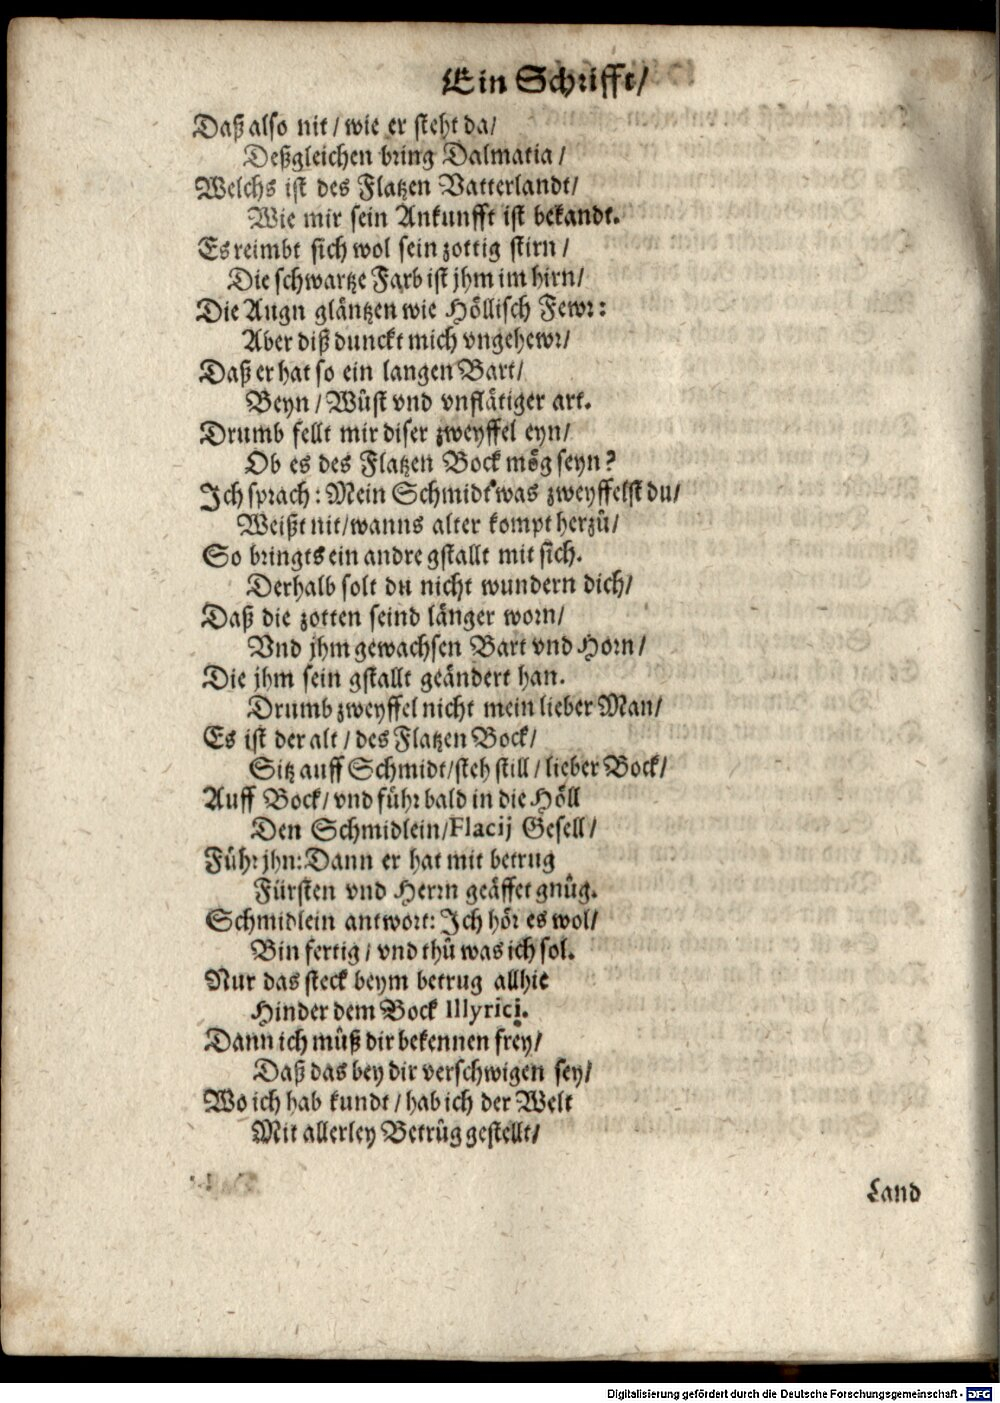 Ein Schrifft/
Daß also nit / wie er steht da/
Deßgleichen bring Dalmatia /
Welchs ist des Flatzen Vatterlandt/
Wie mir sein Ankunfft ist bekandt.
Es reimbt sich wol sein zottig stirn /
Die schwartze Farb ist jhm im hirn/
Die Augn gläntzen wie Höllisch Fewr:
Aber diß dunckt mich vngehewr/
Daß er hat so ein langen Bart/
Beyn / Wüst vnd vnflätiger art.
Drumb fellt mir diser zweyffel eyn/
Ob es des Flatzen Bock mög seyn?
Ich sprach: Mein Schmidt was zweyffelst du/
Weißt nit/wanns alter kompt herzů/
So bringts ein andre gstallt mit sich.
Derhalb solt du nicht wundern dich/
Daß die zotten seind länger worn/
Vnd jhm gewachsen Bart vnd Horn/
Die jhm sein gstallt geändert han.
Drumb zweyffel nicht mein lieber Man/
Es ist der alt / des Flatzen Bock/
Sitz auff Schmidt/steh still / lieber Bock/
Auff Bock/ vnd führ bald in die Höll
Den Schmidlein/Flacij Gesell/
Führ jhn: Dann er hat mit betrug
Fürsten vnd Herrn geäffet gnůg.
Schmidlein antwort: Ich hör es wol/
Bin fertig / vnd thů was ich sol.
Nur das steck beym betrug allhie
Hinder dem Bock Illyrici.
Dann ich můß dir bekennen frey/
Daß das bey dir verschwigen sey/
Wo ich hab kundt / hab ich der Welt
Mit allerley Betrůg gestellt/
Land
Digitalisierung gefördert durch die Deutsche Forschungsgemeinschaft - DFG